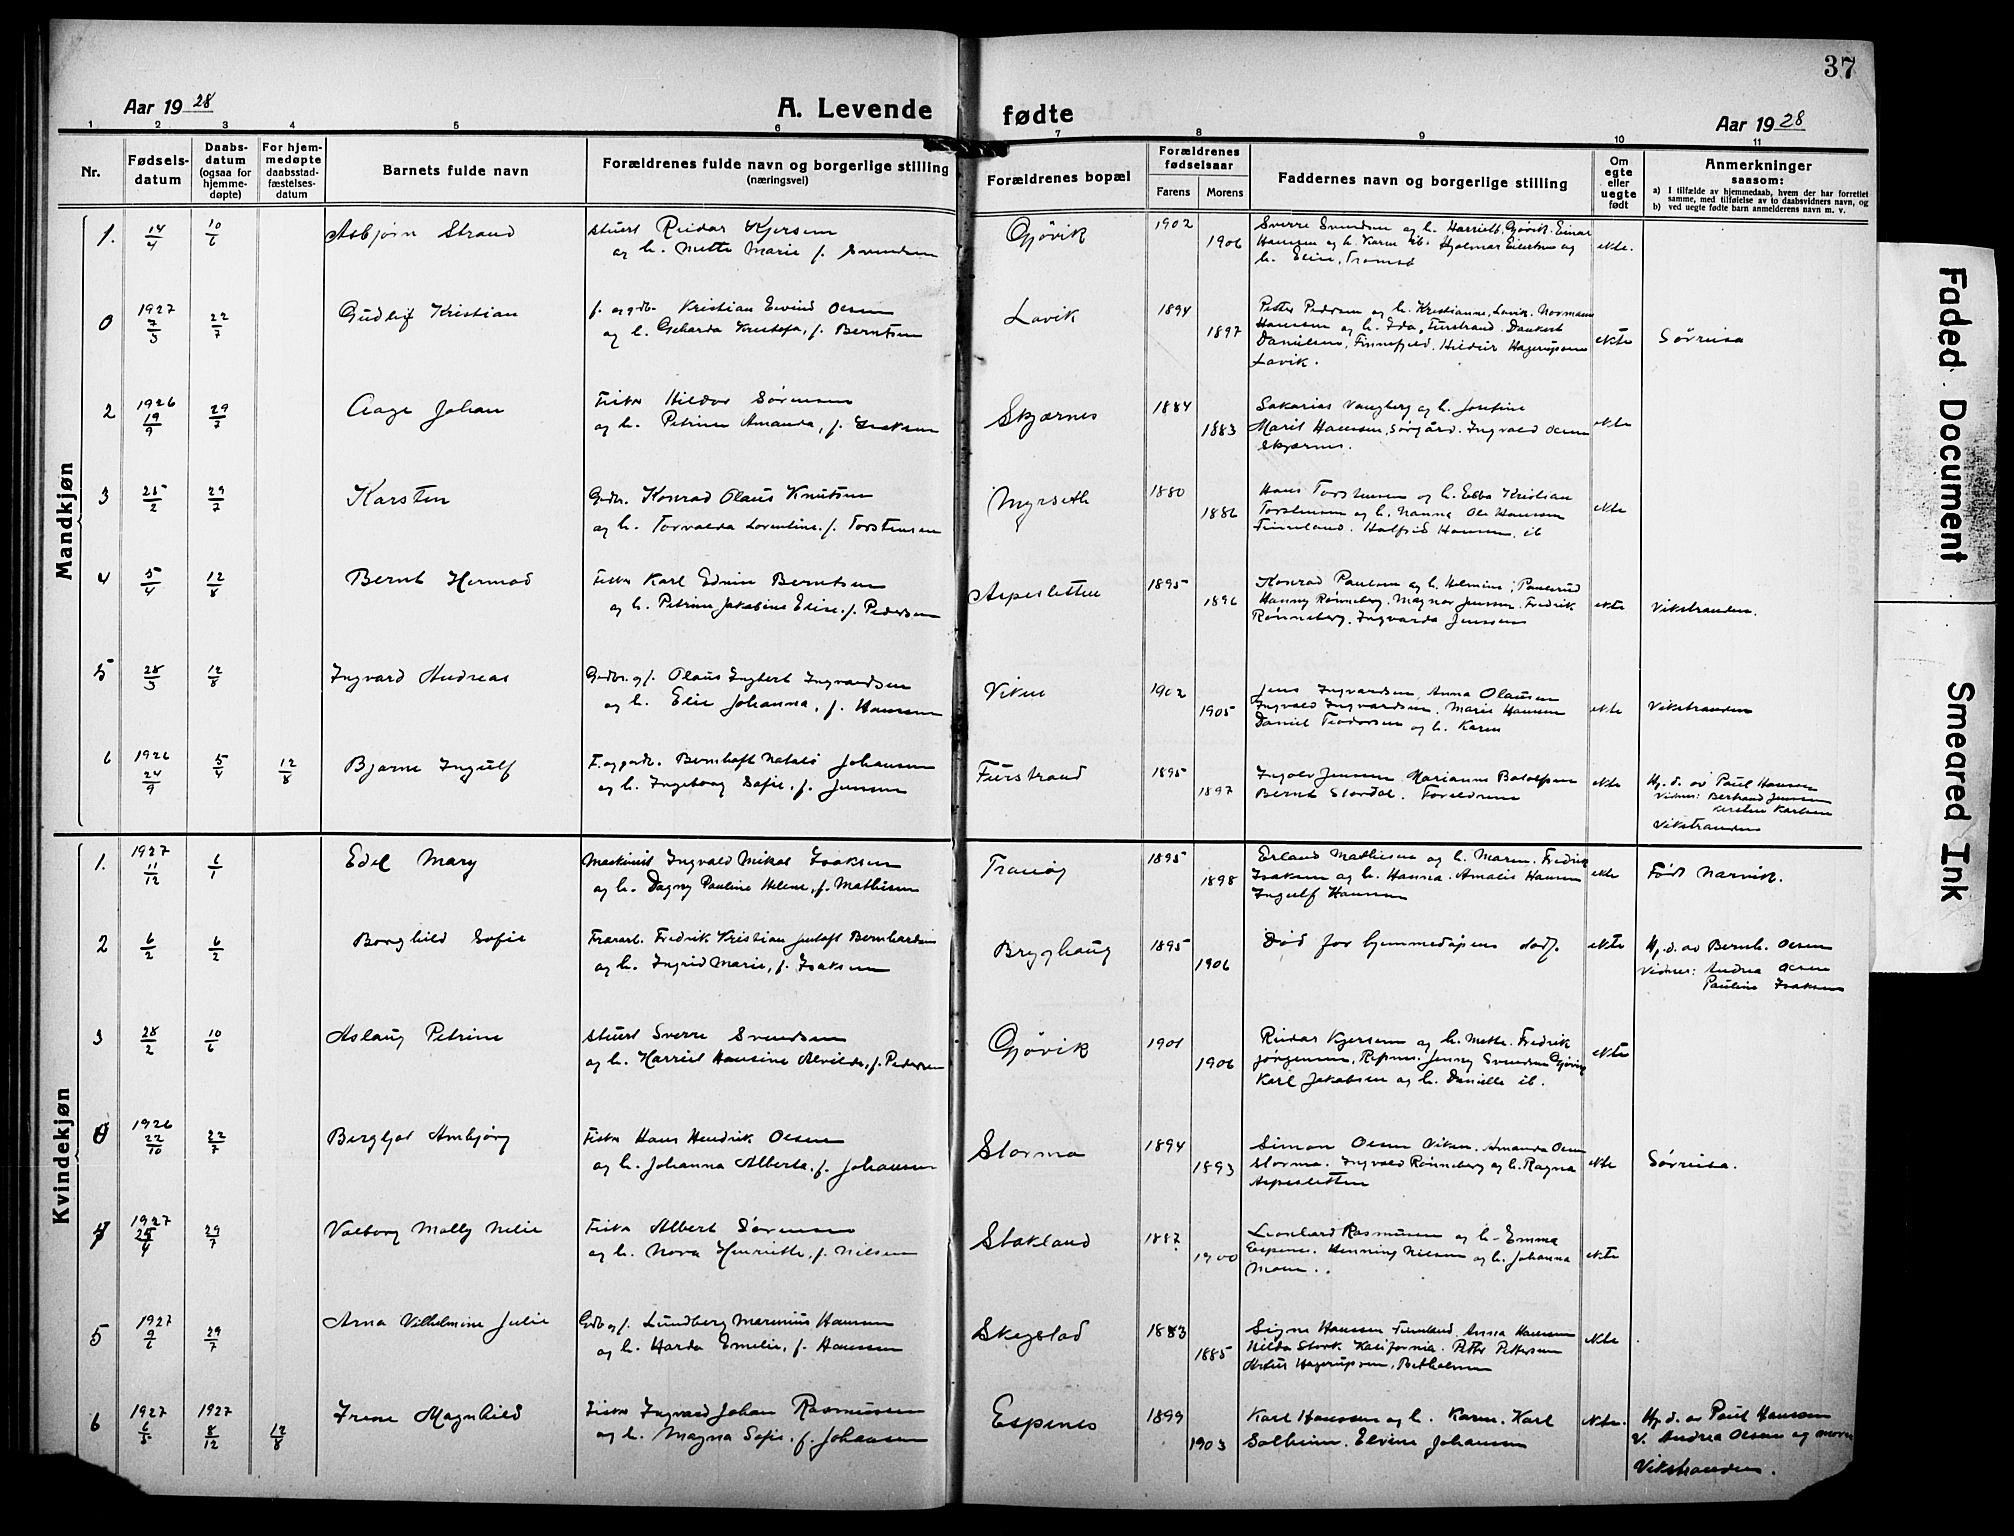 37
Aar 19 28
A. Levende fødte
Aar 19 28
1 2 3 4 5 6 7 8 9 10 11
Nr.
Fødsels-
datum
Daabs-
datum
(ogsaa for
hjemme-
døpte)
For hjem-
medøpte
daabsstad-
fæstelses-
datum
Barnets fulde navn
Forældrenes fulde navn og borgerlige stilling
(næringsvei)
Forældrenes bopæl
Forældrenes
fødselsaar
Farens Morens
Faddernes navn og borgerlige stilling
Om
egte
eller
uegte
født
Anmerkninger
saasom:
a) I tilfælde av hjemmedaab, hvem der har forrettet
samme, med tilføielse av to daabsvidners navn, og
b) ved uegte fødte barn anmelderens navn m. v.
Mandkjøn
1. 14/4 10/6 Asbjørn Strand
Stuert Reidar Kjersem
og h. Mette Marie f. Svendsen
Gjøvik 1902 1906
Sverre Svendsen og h. Harriett, Gjøvik. Einar
Hansen og h. Karen ib. Hjalmar Eilertsen og
h. Elise, Tromsø
ekte.
0 1927 7/3 22/7 Gudleif Kristian
f. og gdb. Kristian Eivind Olsen
og h. Geharda Kristofa, f. Berntsen
Lavik 1894 1897
Petter Pedersen og h. Kristianne, Lavik. Normann
Hanssen og h. Ida, Furstrand. Dankert
Danielsen, Finnefjeld. Hildur Hagerupsen
Lavik.
ekte Sørreisa
2 1926 19/9 29/7 Aage Johan
Fisker Hildor Sørensen
og h. Petrine Amanda, f. Isaksen
Skjærnes 1884 1883
Sakarias Vangberg og h. Josefine
Marit Hansen, Sørgård. Ingvald Olsen
Skjærnes.
ekte
3 25/2 29/7 Karsten
Gdbr. Konrad Olaus Knutsen
og h. Torvalda Lorentine, f. Torstensen
Myrseth 1880 1886
Hans Torstensen og h. Ebba Kristian
Torstensen og h. Nanna Ole Hanssen
Finnland. Halfrid Hansen, ib
ekte
4 5/4 12/8 Bernt Hermod
Fisker Karl Edvin Berntsen
og h. Petrine Jakobine Elise, f. Pedersen
Aspesletten 1895 1896
Konrad Paulsen og h. Helmine, Paulsrud
Hanny Rønneberg. Magnor Jenssen. Fredrik
Rønneberg. Ingvarda Jenssen
ekte Vikstranden.
5 28/3 12/8 Ingvard Andreas
Gdbr. og f. Olaus Ingbert Ingvardsen
og h. Elise Johanna, f. Hanssen
Viken 1902 1905
Jens Ingvardsen, Anna Olausen
Ingvald Ingvardsen, Marie Hansen
Daniel Teodorsen og h. Karen
ekte Vikstranden
6 1926 24/9 5/4 12/8 Bjarne Ingulf
F. og gardb. Bernhoft Natal Johansen
og h. Ingeborg Sofie, f. Jensen
Furstrand 1895 1897
Ingolv Jensen. Marianne Botolfsen
Bernt Stordal. Foreldrene
ekte Hj. d. av Paul Hansen
Vidner: Bertrand Jenssen
Kirstine Karlsen
Vikstranden
Kvindekjøn
1. 1927 11/12 6/1 Edel Mary
Maskinist Ingvald Mikal Isaksen
og h. Dagny Pauline Helene, f. Mathisen
Tranøy 1895 1898
Erland Mathisen og h. Maren. Fredrik
Isaksen og h. Hanna. Amalie Hansen
Ingulf Hansen
ekte Født Narvik.
2 6/2 6/2 Borghild Sofie
Fhv. arb. Fredrik Kristian Jentoft Bernhardsen
og h. Ingrid Marie, f. Isaksen
Brygghaug 1895 1906
Død før hjemmedåpens stadf.
ekte Hj. d. av Bernh. Olsen
Vidner: Andrea Olsen
Pauline Isaksen
3 28/2 10/6 Aslaug Petrine
Stuert Sverre Svendsen
og h. Harriet Hansine Alvilde, f. Pedersen
Gjøvik 1901 1906
Reidar Kjersem og h. Mette. Fredrik
Jørgensen, Refsnes. Jenny Svendsen Gjøvik
Karl Jakobsen og h. Danielle ib.
ekte
0 1926 22/10 22/7 Bergljot Ambjørg
Fisker Hans Hendrik Olsen
og h. Johanna Alberta, f. Johansen
Stormo 1894 1893
Simon Olsen Viken. Amanda Olsen
Stormo. Ingvald Rønneberg og h. Ragna
Aspesletten
ekte Sørreisa.
4 1927 25/4 29/7 Valborg Molly Nelie
Fisker Albert Sørensen
og h. Nora Henriette, f. Nilsen
Stakland 1887 1900
Leonhard Rasmussen og h. Emma
Espenes. Henning Nilsen og h. Johanna
Moen.
ekte
5 1927 9/6 29/7 Arna Vilhelmine Julie
Gdb og f. Lundberg Marenius Hansen
og h. Harda Emelie, f. Hanssen
Skogstad 1883 1885
Signe Hanssen Finnland. Anna Hansen
Hilda Stork Kalifornia. Petter Pettersen
Artur Hagerupsen, Betholmen
ekte
6 1927 6/5 1927 8/12 12/8 Irene Magnhild
Fisker Ingvald Johan Rasmussen
og h. Magna Sofie, f. Johansen
Espenes 1899 1903
Karl Hanssen og h. Karen. Karl
Solheim. Elvine Johansen
ekte. Hj. d. av Paul Hanssen
V. Andrea Olsen og moren
Vikstranden.
Faded Document
Smeared Ink